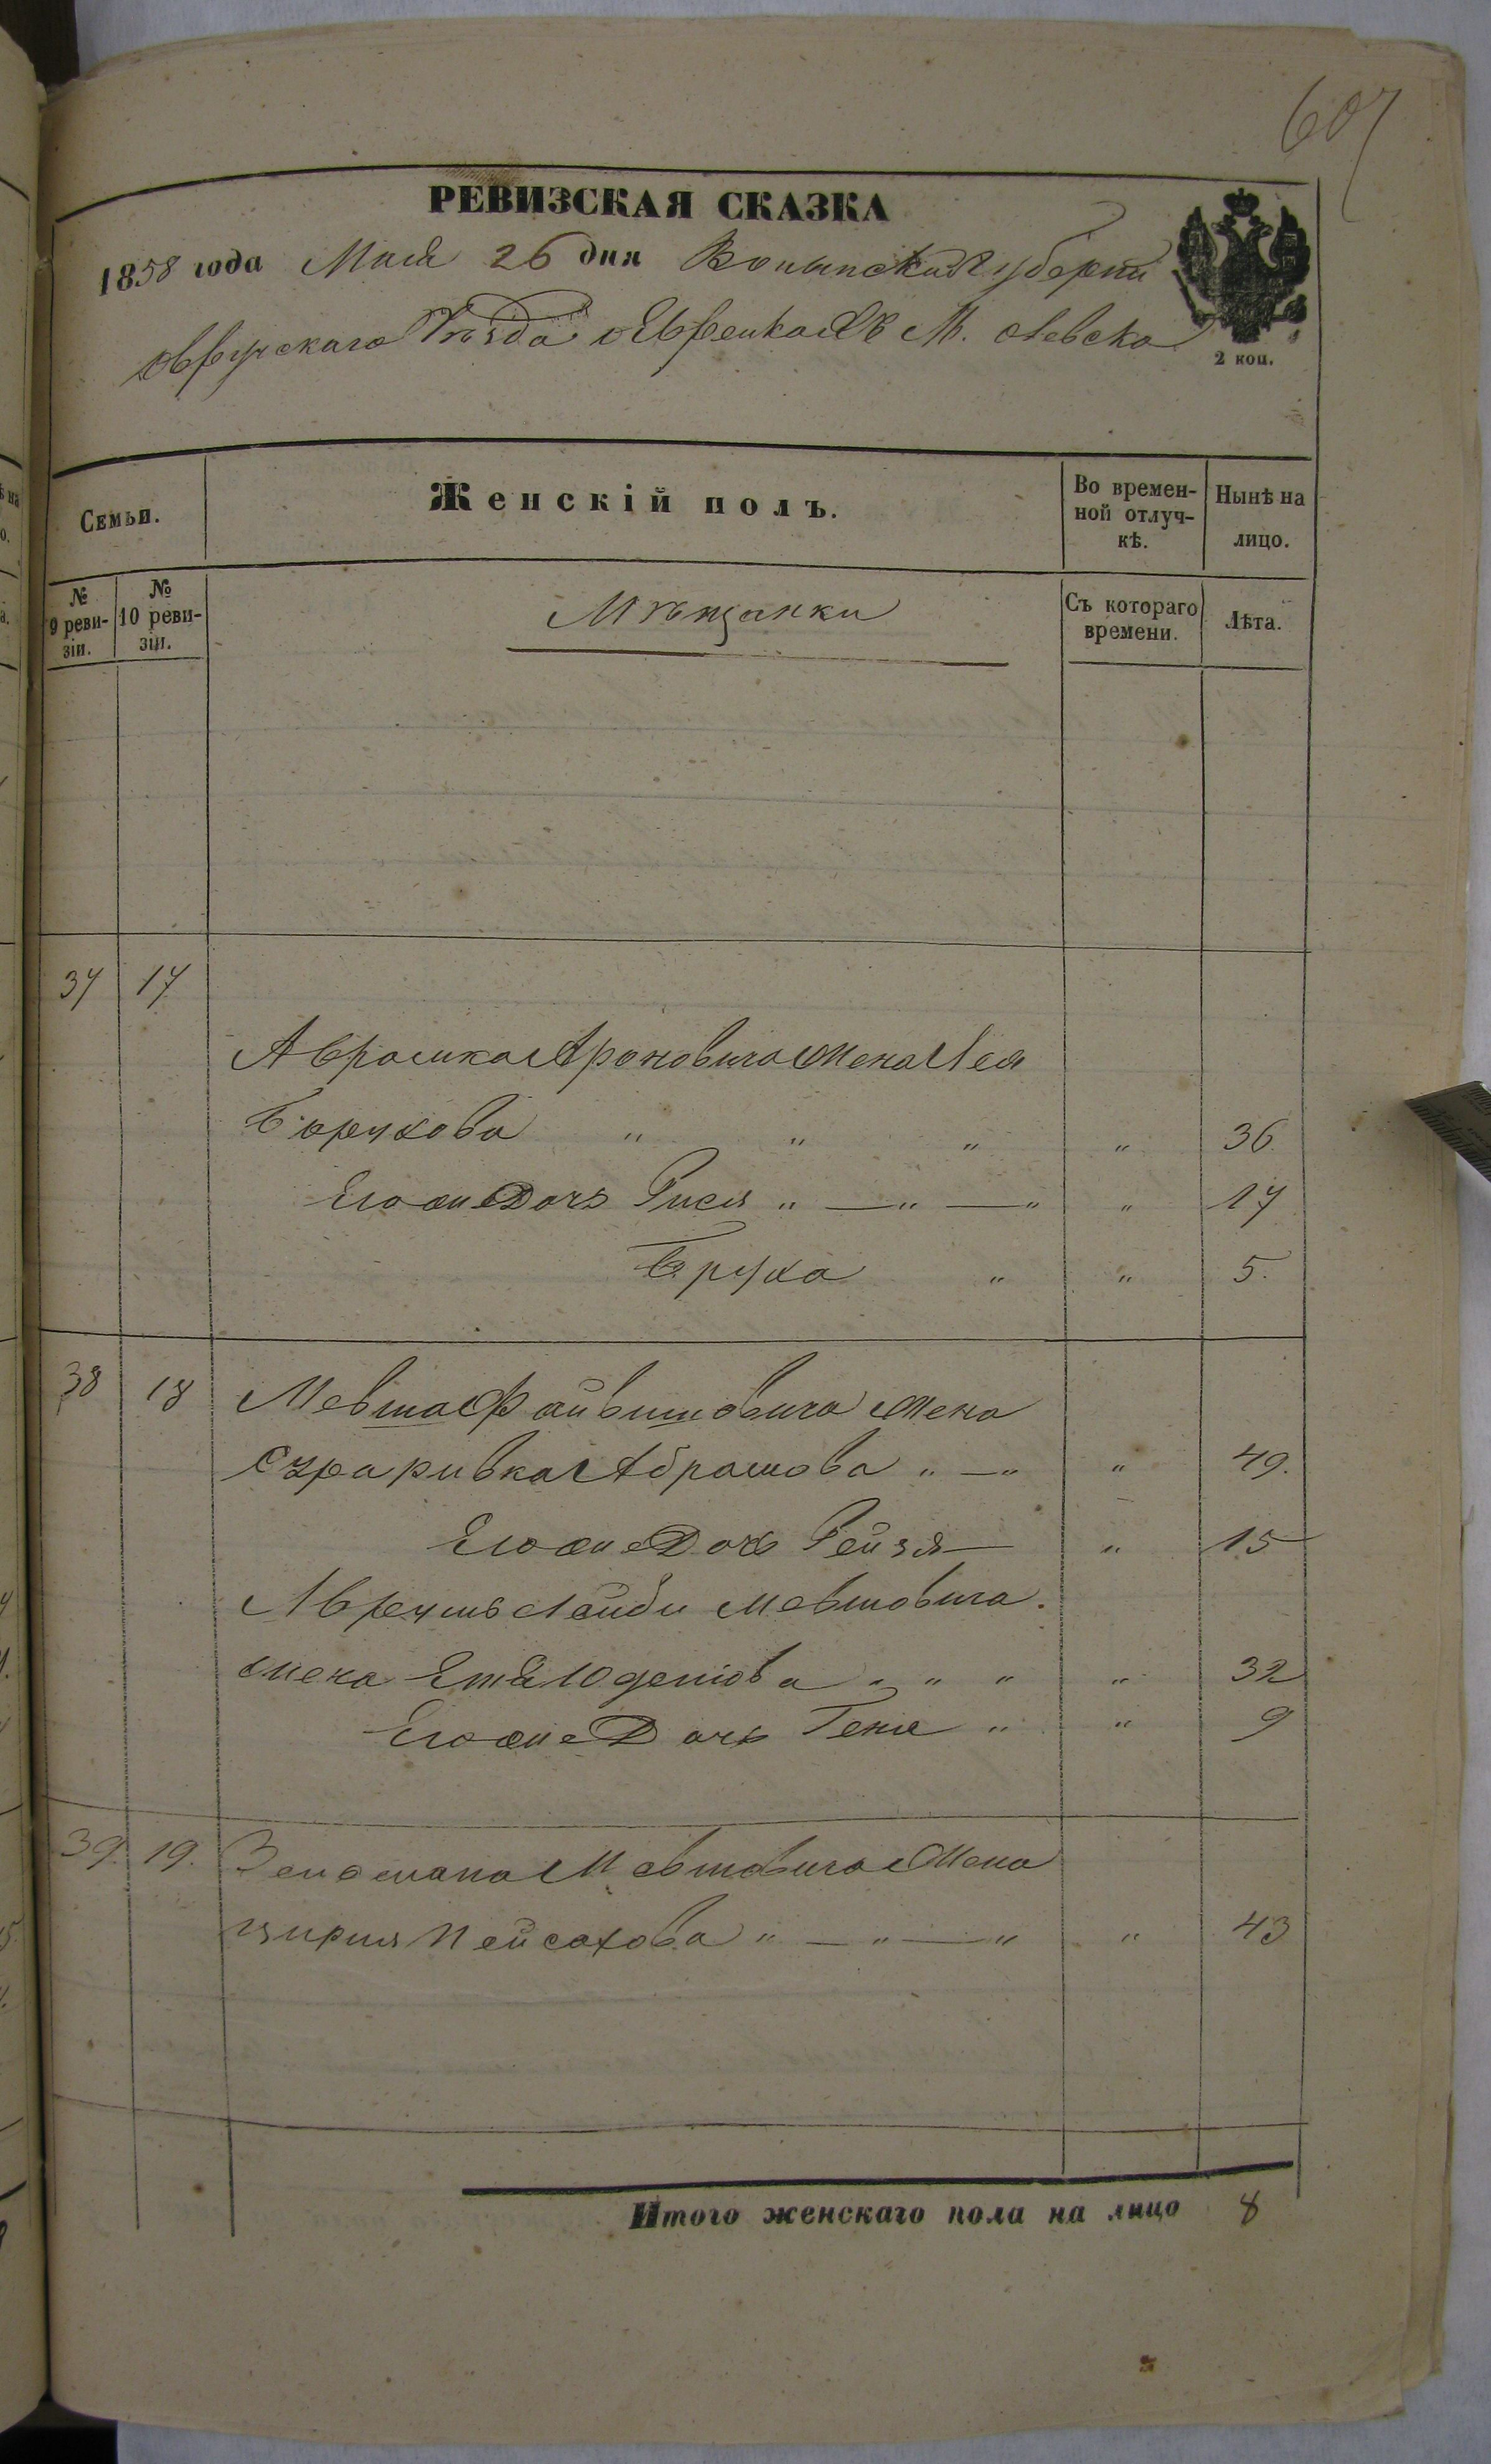 607
РЕВИЗСКАЯ СКАЗКА
1858 года Мая 26 дня Волынской Губернии
Овручскаго Уѣзда о Евреяхъ М. Олевска
2 коп.
Семьи.
Женскій полъ.
Во времен-
ной отлуч-
кѣ.
Нынѣ на
лицо.
№
9 реви-
зіи.
№
10 реви-
зіи.
Мѣщанки
Съ котораго
времени.
Лѣта.
37 17
Аврамка Ароновича жена Лея
Борухова " " " " 36
Его же Дочь Рися " — " — " " 17
Бруха " " 5.
38 18 Мевша Файвишовича жена
Абрамова " — " " 49.
Его же Дочь Рейзя — " 15
Лейби Мевшовича.
жена " " " " 32
Его же Дочь Геня " " 9
39. 19. Мевшовича жена
Пейсахова " — " — " " 43
Итого женскаго пола на лицо 8